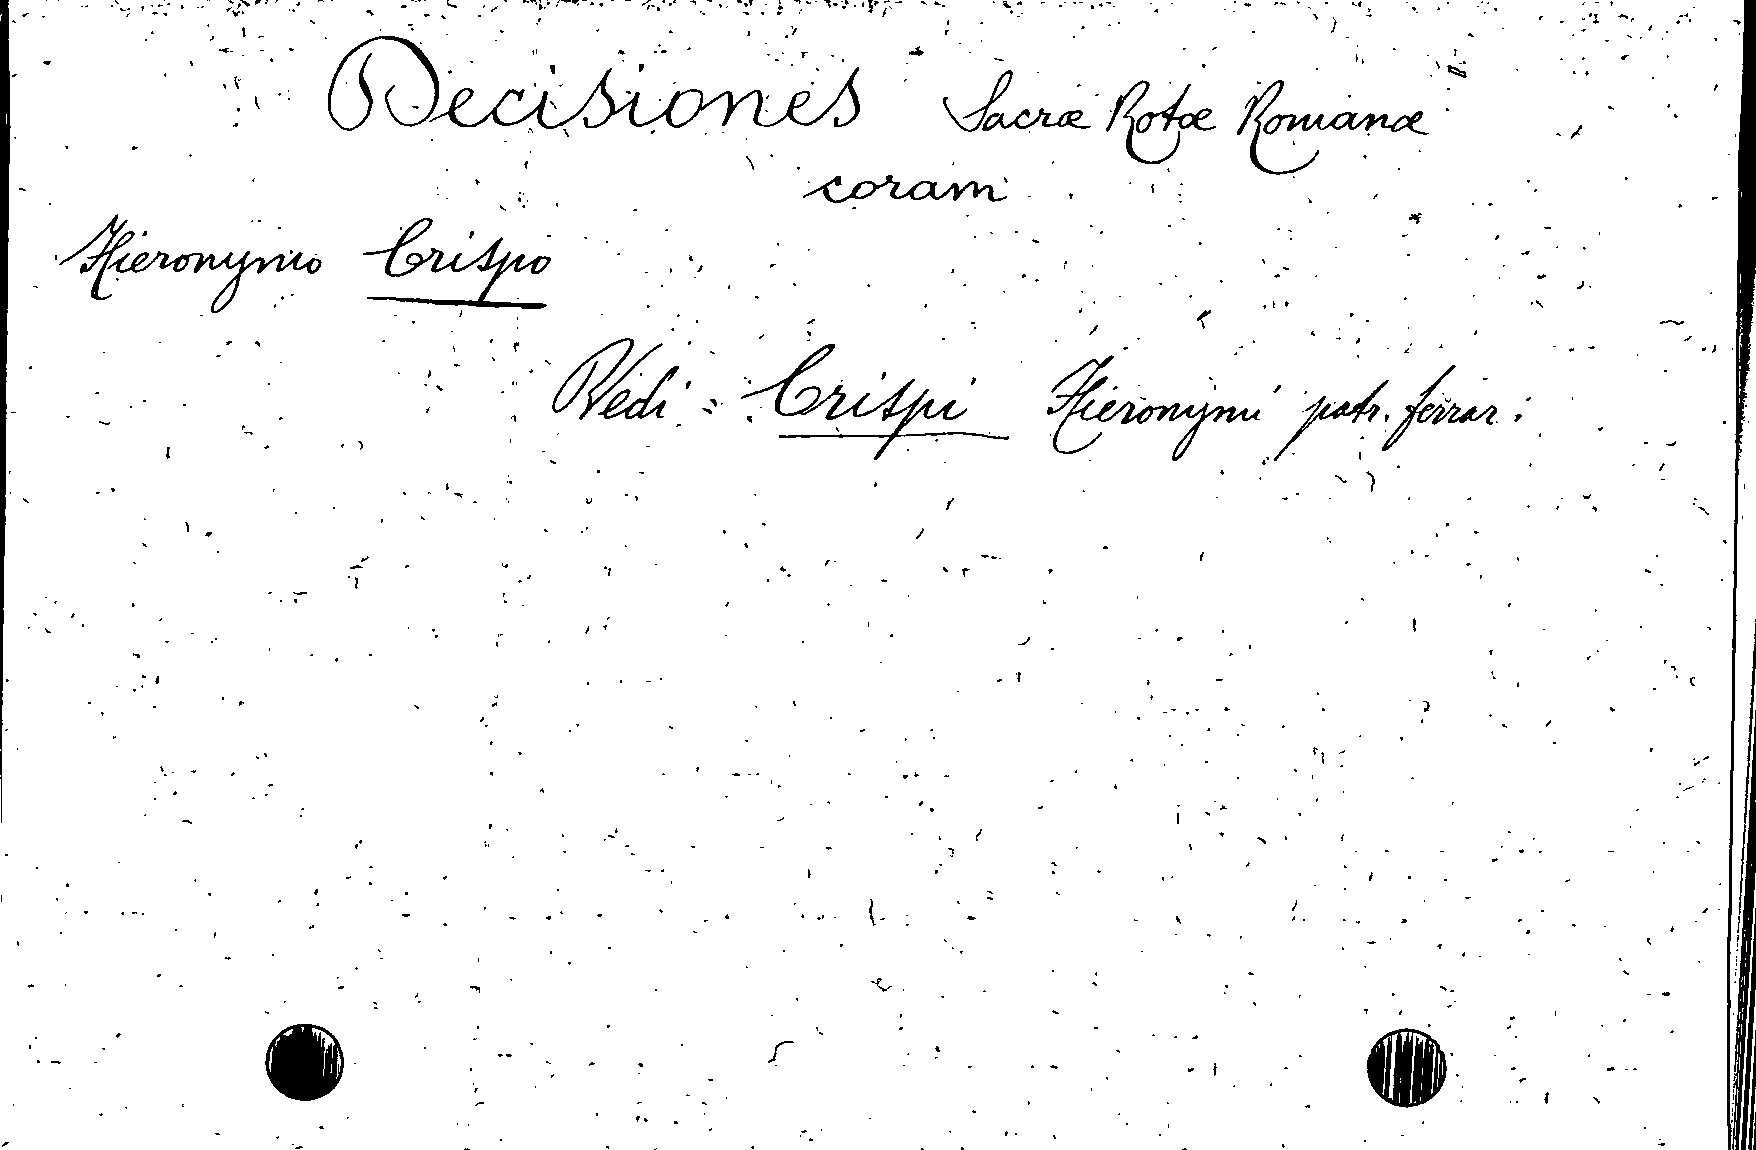 Decisiones Sacræ Rotæ Romanæ
coram
Hieronymo Crispo
Vedi = Crispi Hieronymi patr. ferrar: